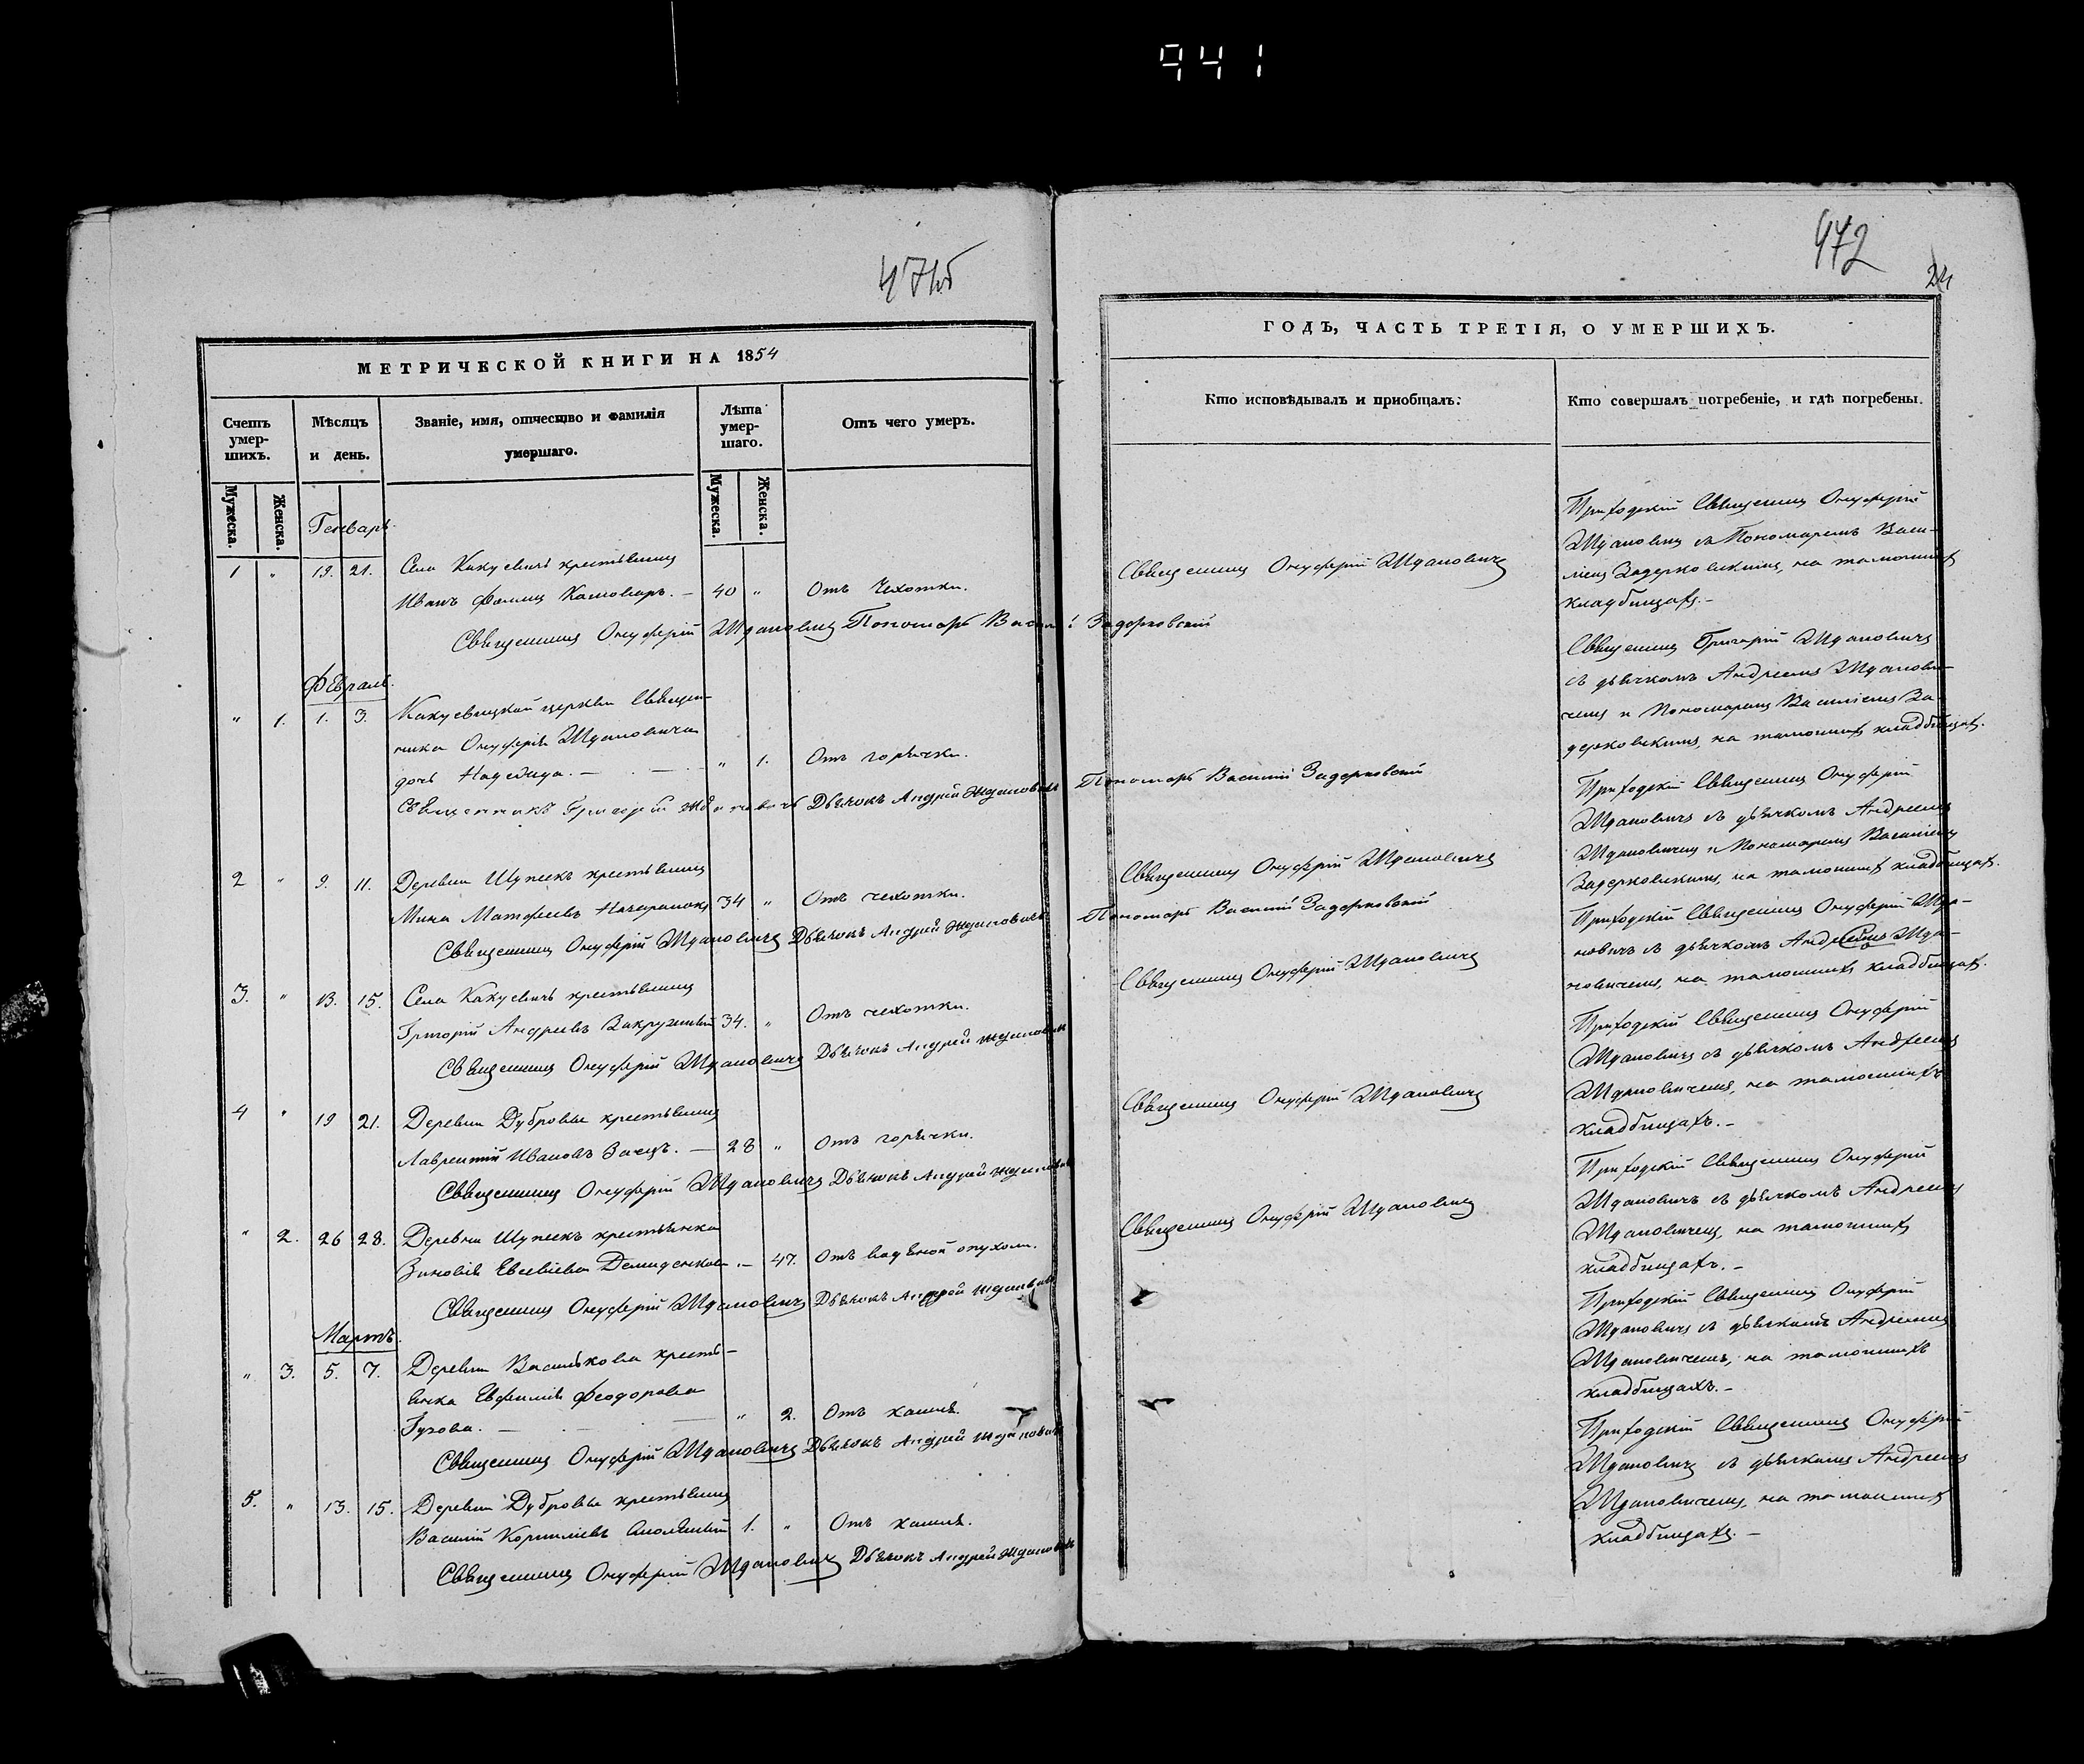 941
471б
МЕТРИЧЕСКОЙ КНИГИ НА 1854
Счетъ умер-шихъ.
Мѣсяцъ и день.
Званіе, имя, отчество и фамилія умершаго.
Лѣта умер-шаго.
Отъ чего умеръ.
Мужеска.
Женска.
Мужеска.
Женска.
Генварь.
1 " 19. 21. Села Какуевичь крестьянинъ
Иванъ Фомин — 40 " Отъ Чехотки.
Священникъ Онуфрій Ждановичъ Пономарь Василій Задерковскій
Февраль.
" 1. 1. 3. Какуевицкой церкви Священ-
ника Онуфрія Ждановича
дочь Надежда. — " 1. Отъ горячки.
Священникъ Григорій Ждановичъ Дьячокъ Андрей Ждановичъ Пономарь Василій Задерковскій
2 " 9. 11. Деревни Шупекъ крестьянинъ
Мина Матфеевъ 34 " Отъ чехотки.
Священникъ Онуфрій Ждановичъ Дьячокъ Андрей Ждановичъ Пономарь Василій Задерковскій
3. " 13. 15. Села Какуевичь крестьянинъ
Григорій Андреевъ 34. " Отъ чехотки.
Священникъ Онуфрій Ждановичъ Дьячокъ Андрей Ждановичъ
4 " 19 21. Деревни Дубровы крестьянинъ
Лаврентій Ивановъ Заецъ. — 28 " Отъ горячки.
Священникъ Онуфрій Ждановичъ Дьячокъ Андрей Ждановичъ
" 2. 26 28. Деревни Шупекъ крестьянка
Зиновія Евсевіева Демиденкова. — 47. Отъ водяной опухоли.
Священникъ Онуфрій Ждановичъ Дьячокъ Андрей Ждановичъ
Мартъ.
" 3. 5. 7. Деревни Василькова кресть-
янка Евфимія Феодорова
— " 2. Отъ кашля.
Священникъ Онуфрій Ждановичъ Дьячокъ Андрей Ждановичъ
5. " 13. 15. Деревни Дубровы крестьянинъ
Василій Корниліевъ 1. " Отъ кашля.
Священникъ Онуфрій Ждановичъ Дьячокъ Андрей Ждановичъ
472
24
ГОДЪ, ЧАСТЬ ТРЕТІЯ, О УМЕРШИХЪ.
Кто исповѣдывалъ и пріобщалъ:
Кто совершалъ погребеніе, и гдѣ погребены.
Священникъ Онуфрій Ждановичъ
Священникъ Онуфрій Ждановичъ
Священникъ Онуфрій Ждановичъ
Священникъ Онуфрій Ждановичъ
Священникъ Онуфрій Ждановичъ
Приходскій Священникъ Онуфрій
Ждановичъ съ Пономаремъ Васи-
ліемъ Задерковскимъ, на тамошнихъ
кладбищахъ. —
Священникъ Григорій Ждановичъ
съ дьячкомъ Андреемъ Жданови-
чемъ и Пономаремъ Василіемъ За-
дерковскимъ, на тамошнихъ кладбищахъ.
Приходскій Священникъ Онуфрій
Ждановичъ съ дьячкомъ Андреемъ
Ждановичемъ и Пономаремъ Василіемъ
Задерковскимъ, на тамошнихъ кладбищахъ.
Приходскій Священникъ Онуфрій Жда-
новичъ съ дьячкомъ Андреемъ Жда-
новичемъ, на тамошнихъ кладбищахъ.
Приходскій Священникъ Онуфрій
Ждановичъ съ дьячкомъ Андреемъ
Ждановичемъ, на тамошнихъ
кладбищахъ. —
Приходскій Священникъ Онуфрій
Ждановичъ съ дьячкомъ Андреемъ
Ждановичемъ, на тамошнихъ
кладбищахъ. —
Приходскій Священникъ Онуфрій
Ждановичъ съ дьячкомъ Андреемъ
Ждановичемъ, на тамошнихъ
кладбищахъ. —
Приходскій Священникъ Онуфрій
Ждановичъ съ дьячкомъ Андреемъ
Ждановичемъ, на тамошнихъ
кладбищахъ. —